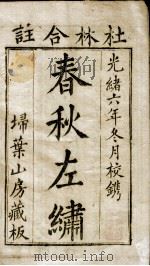 杜林合註
光緒六年冬月校鐫
春秋左繡
埽葉山房藏板
http://www.mtoou.info